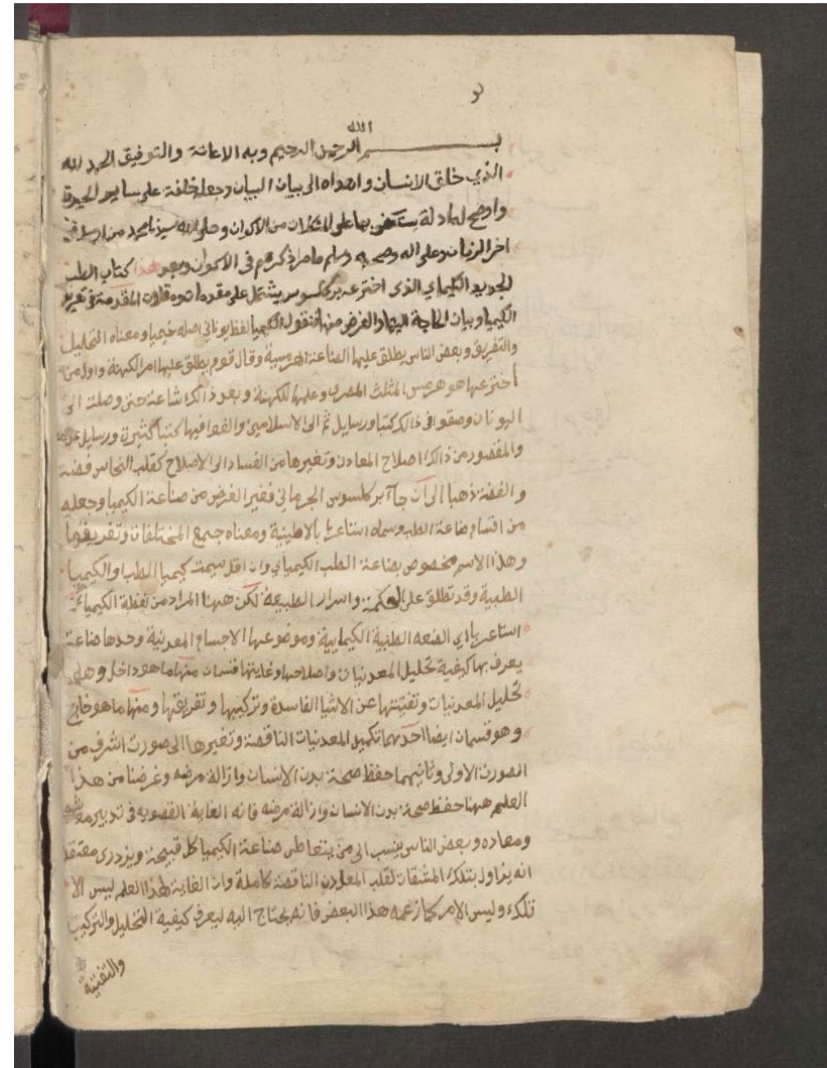 بسم الله الرحمن الرحيم وبه الاعانة والتوفيق الحمد لله
الذي خلق الانسان واهداه الى بيان البيان وجعله خلفة على ساير الحيوة
واوضح له ادلة على من الاكوان وصلى الله سيدنا محمد من ارسل في
اخر الزمان وعلى اله وصحبه وسلم في الاكوان وبعد هذا كتاب الطب
الجديد الكيماي الذي اخترعه بركلسوس يشتمل على مقدمة المقدمة في تعريف
الكيميا وبيان الحاجة اليها والغرض منها فنقول الكيميا لفظ يوناني اصله خيميا ومعناه التحليل
والتفريق وبعض الناس يطلق عليها الصناعة الهرمسية وقال قوم يطلق عليها امر الكهنة واول من
اخترعها هو هرمس المثلث المصري وعلمها للكهنة وبعد ذالك شاعة حتى وصلت الى
اليونان وصنفو في ذالك كتبا ورسايل ثم الى الاسلاميين والفوا فيها كتبا كثيرة ورسايل
والمقصود من ذالك اصلاح المعادن وتغيرها من الفساد الى الاصلاح كقلب النحاس فضة
والفضة ذهبا الى ان جآ بركلسوس الجرماني فغير الغرض من صناعة الكيميا وجعله
من اقسام صناعة الطب وسماه اسباغريا بالاطينية ومعناه جمع المختلفات وتفريقها
وهذا الاسم مخصوص بصناعة الطب الكيمياي وان اقل سيمت كيميا الطب او الكيميا
الطبية وقد تطلق على الحكمة واسرار الطبيعة لكن ههنا المراد من لفظة الكيميا
اي الصنعة الطبية الكيمايية وموضوعها الاجسام المعدنية وحدها صناعة
يعرف بها كيفية تحليل المعدنيات واصلاحها وغايتها قسمان منها ما هو داخل وهي
تحليل المعدنيات وتفتيتها عن الاشيا الفاسدة وتركيبها وتفريقها ومنها ما هو خارج
وهو قسمان ايضا احدهما تكميل المعدنيات الناقصة وتغيرها الى صورت اشرف من
الصورت الاولى وثانيهما حفظ صحة بدن الانسان وازالة مرضه وغرضنا من هذا
العلم ههنا حفظ صحة بدن الانسان وازالة مرضه فانه الغاية القصويه في تدبير
ومعاده وبعض الناس ينسب الى من يتعاطى صناعة الكيميا كل قبيحة ويزدرى معتقد
انه يزاول بتلك المشقات لقلب المعادن الناقصة كاملة وان الغاية لهذا العلم ليس الا
تلك وليس الامر كما زعمه هذا البعض فانه يحتاج اليه ليعرف كيفية التحليل والتركيب
والتفتية